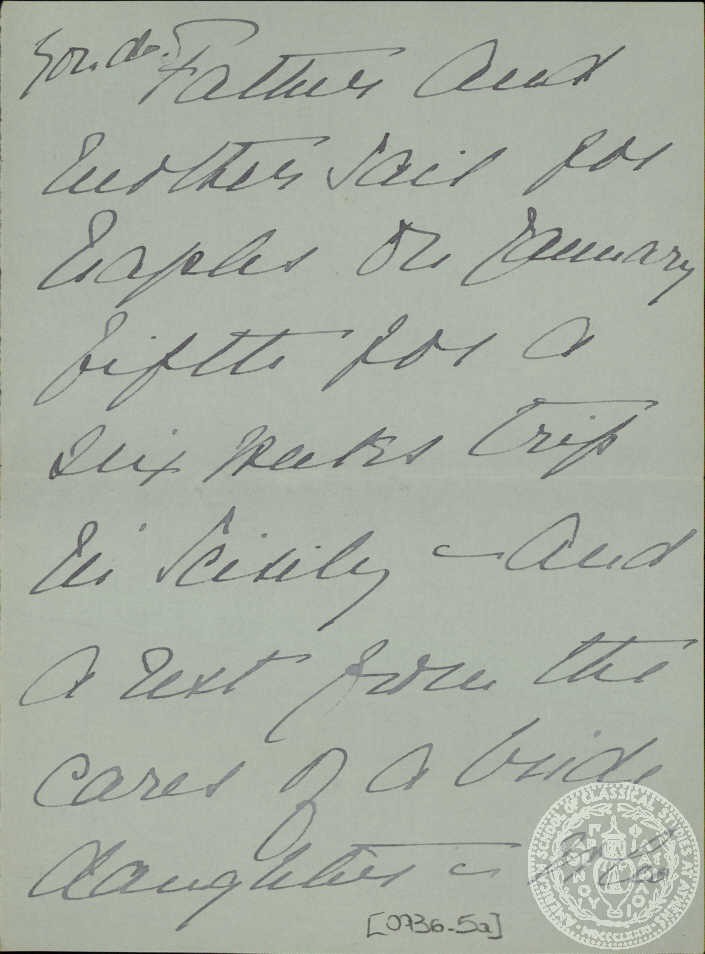 Father and
mother sail for
Naples on January
fifth for a
six weeks trip
in Scixily – and
a rest from the
cares of a bride
daughter –
[0736-5a]
AMERICAN SCHOOL OF CLASSICAL STUDIES AT ATHENS
MDCCCLXXXI
ΠΑΡΘΕΝΟΥ